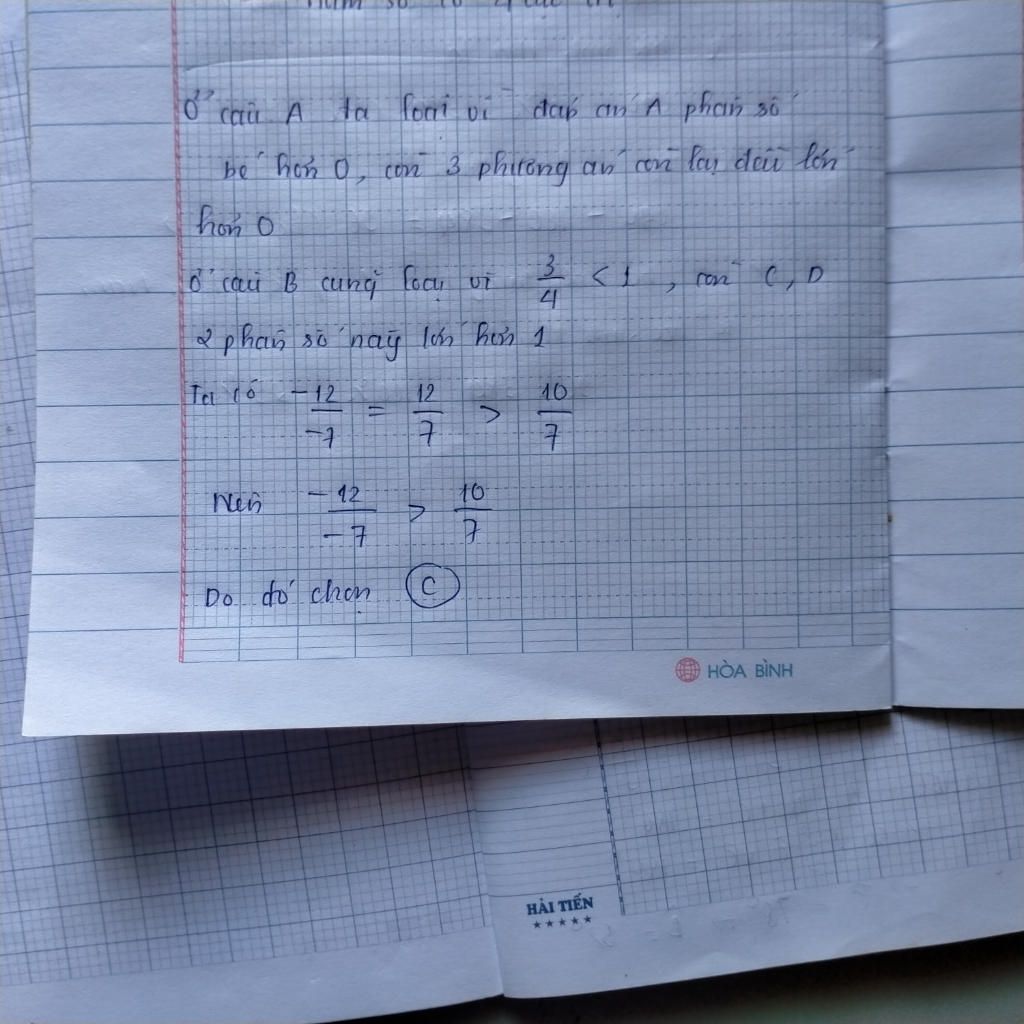 Ở câu A ta loại vì đáp án A phân số
bé hơn 0, còn 3 phương án còn lại đều lớn
hơn 0
Ở câu B cũng loại vì 3/4 < 1, còn C, D
2 phân số này lớn hơn 1
Ta có -12/-7 = 12/7 > 10/7
Nên -12/-7 > 10/7
Do đó chọn C
HÒA BÌNH
HẢI TIẾN